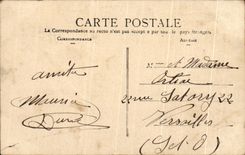 CARTE POSTALE
La Correspondance au recto n'est pas acceptée par tous les pays étrangers
CORRESPONDANCE
ADRESSE
A Madame
amitié
22 rue Satory 22
Maurice
Versailles
(S-et-O)